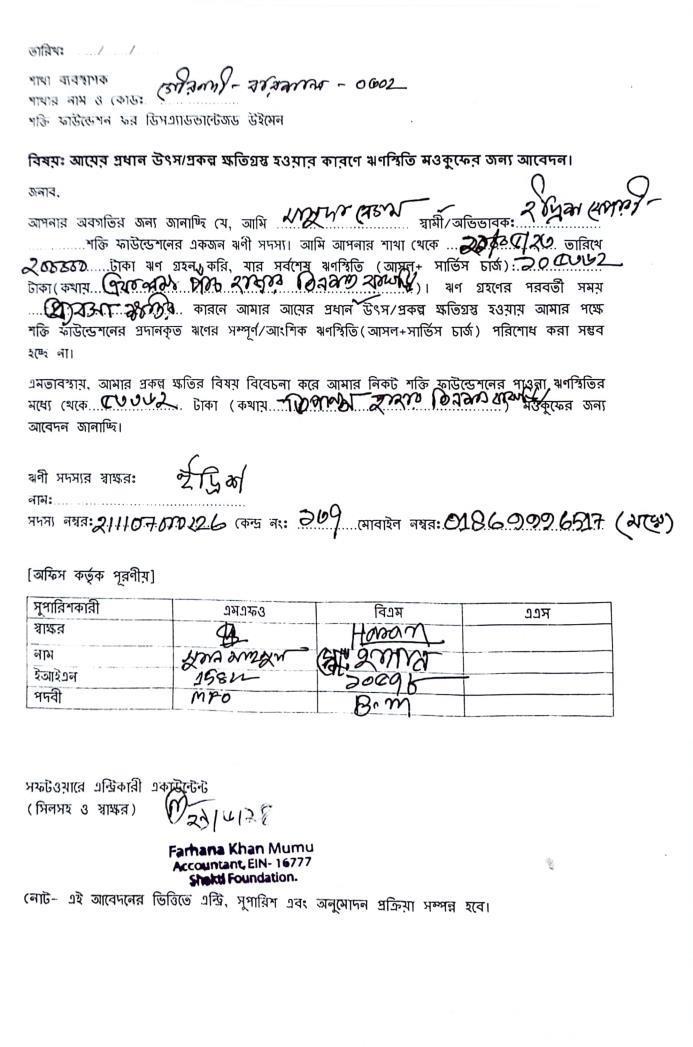 তারিখঃ ...../...../.....
শাখা ব্যবস্থাপক
শাখার নাম ও কোডঃ গৌরনদী - বরিশাল - ০৩০২
শক্তি ফাউন্ডেশন ফর ডিসএ্যাডভান্টেজড উইমেন
বিষয়ঃ আয়ের প্রধান উৎস/প্রকল্প ক্ষতিগ্রস্ত হওয়ার কারণে ঋণস্থিতি মওকুফের জন্য আবেদন।
জনাব,
আপনার অবগতির জন্য জানাচ্ছি যে, আমি মাসুদা বেগম স্বামী/অভিভাবক: ইদ্রিস বেপারী
শক্তি ফাউন্ডেশনের একজন ঋণী সদস্য। আমি আপনার শাখা থেকে তারিখে
টাকা ঋণ গ্রহন করি, যার সর্বশেষ ঋণস্থিতি (আসল+ সার্ভিস চার্জ):
টাকা(কথায় হাজার তিনশত বাষট্টি)। ঋণ গ্রহণের পরবর্তী সময়
ব্যবসা ক্ষতির কারনে আমার আয়ের প্রধান উৎস/প্রকল্প ক্ষতিগ্রস্ত হওয়ায় আমার পক্ষে
শক্তি ফাউন্ডেশনের প্রদানকৃত ঋণের সম্পূর্ণ/আংশিক ঋণস্থিতি(আসল+সার্ভিস চার্জ) পরিশোধ করা সম্ভব
হচ্ছে না।
এমতাবস্থায়, আমার প্রকল্প ক্ষতির বিষয় বিবেচনা করে আমার নিকট শক্তি ফাউন্ডেশনের পাওনা ঋণস্থিতির
মধ্যে থেকে টাকা (কথায় হাজার তিনশত বাষট্টি) মওকুফের জন্য
আবেদন জানাচ্ছি।
ঋণী সদস্যর স্বাক্ষরঃ ইদ্রিস
নামঃ
সদস্য নম্বরঃ কেন্দ্র নং: ১৩৭ মোবাইল নম্বরঃ
[অফিস কর্তৃক পূরণীয়]
সুপারিশকারী এমএফও বিএম এএস
স্বাক্ষর Hasan
নাম মোঃ হাসান
ইআইএন
পদবী MFO B.M
সফটওয়ারে এন্ট্রিকারী একাউন্টেন্ট
(সিলসহ ও স্বাক্ষর)
Farhana Khan Mumu
Accountant, EIN- 16777
Shakti Foundation.
নোট- এই আবেদনের ভিত্তিতে এন্ট্রি, সুপারিশ এবং অনুমোদন প্রক্রিয়া সম্পন্ন হবে।